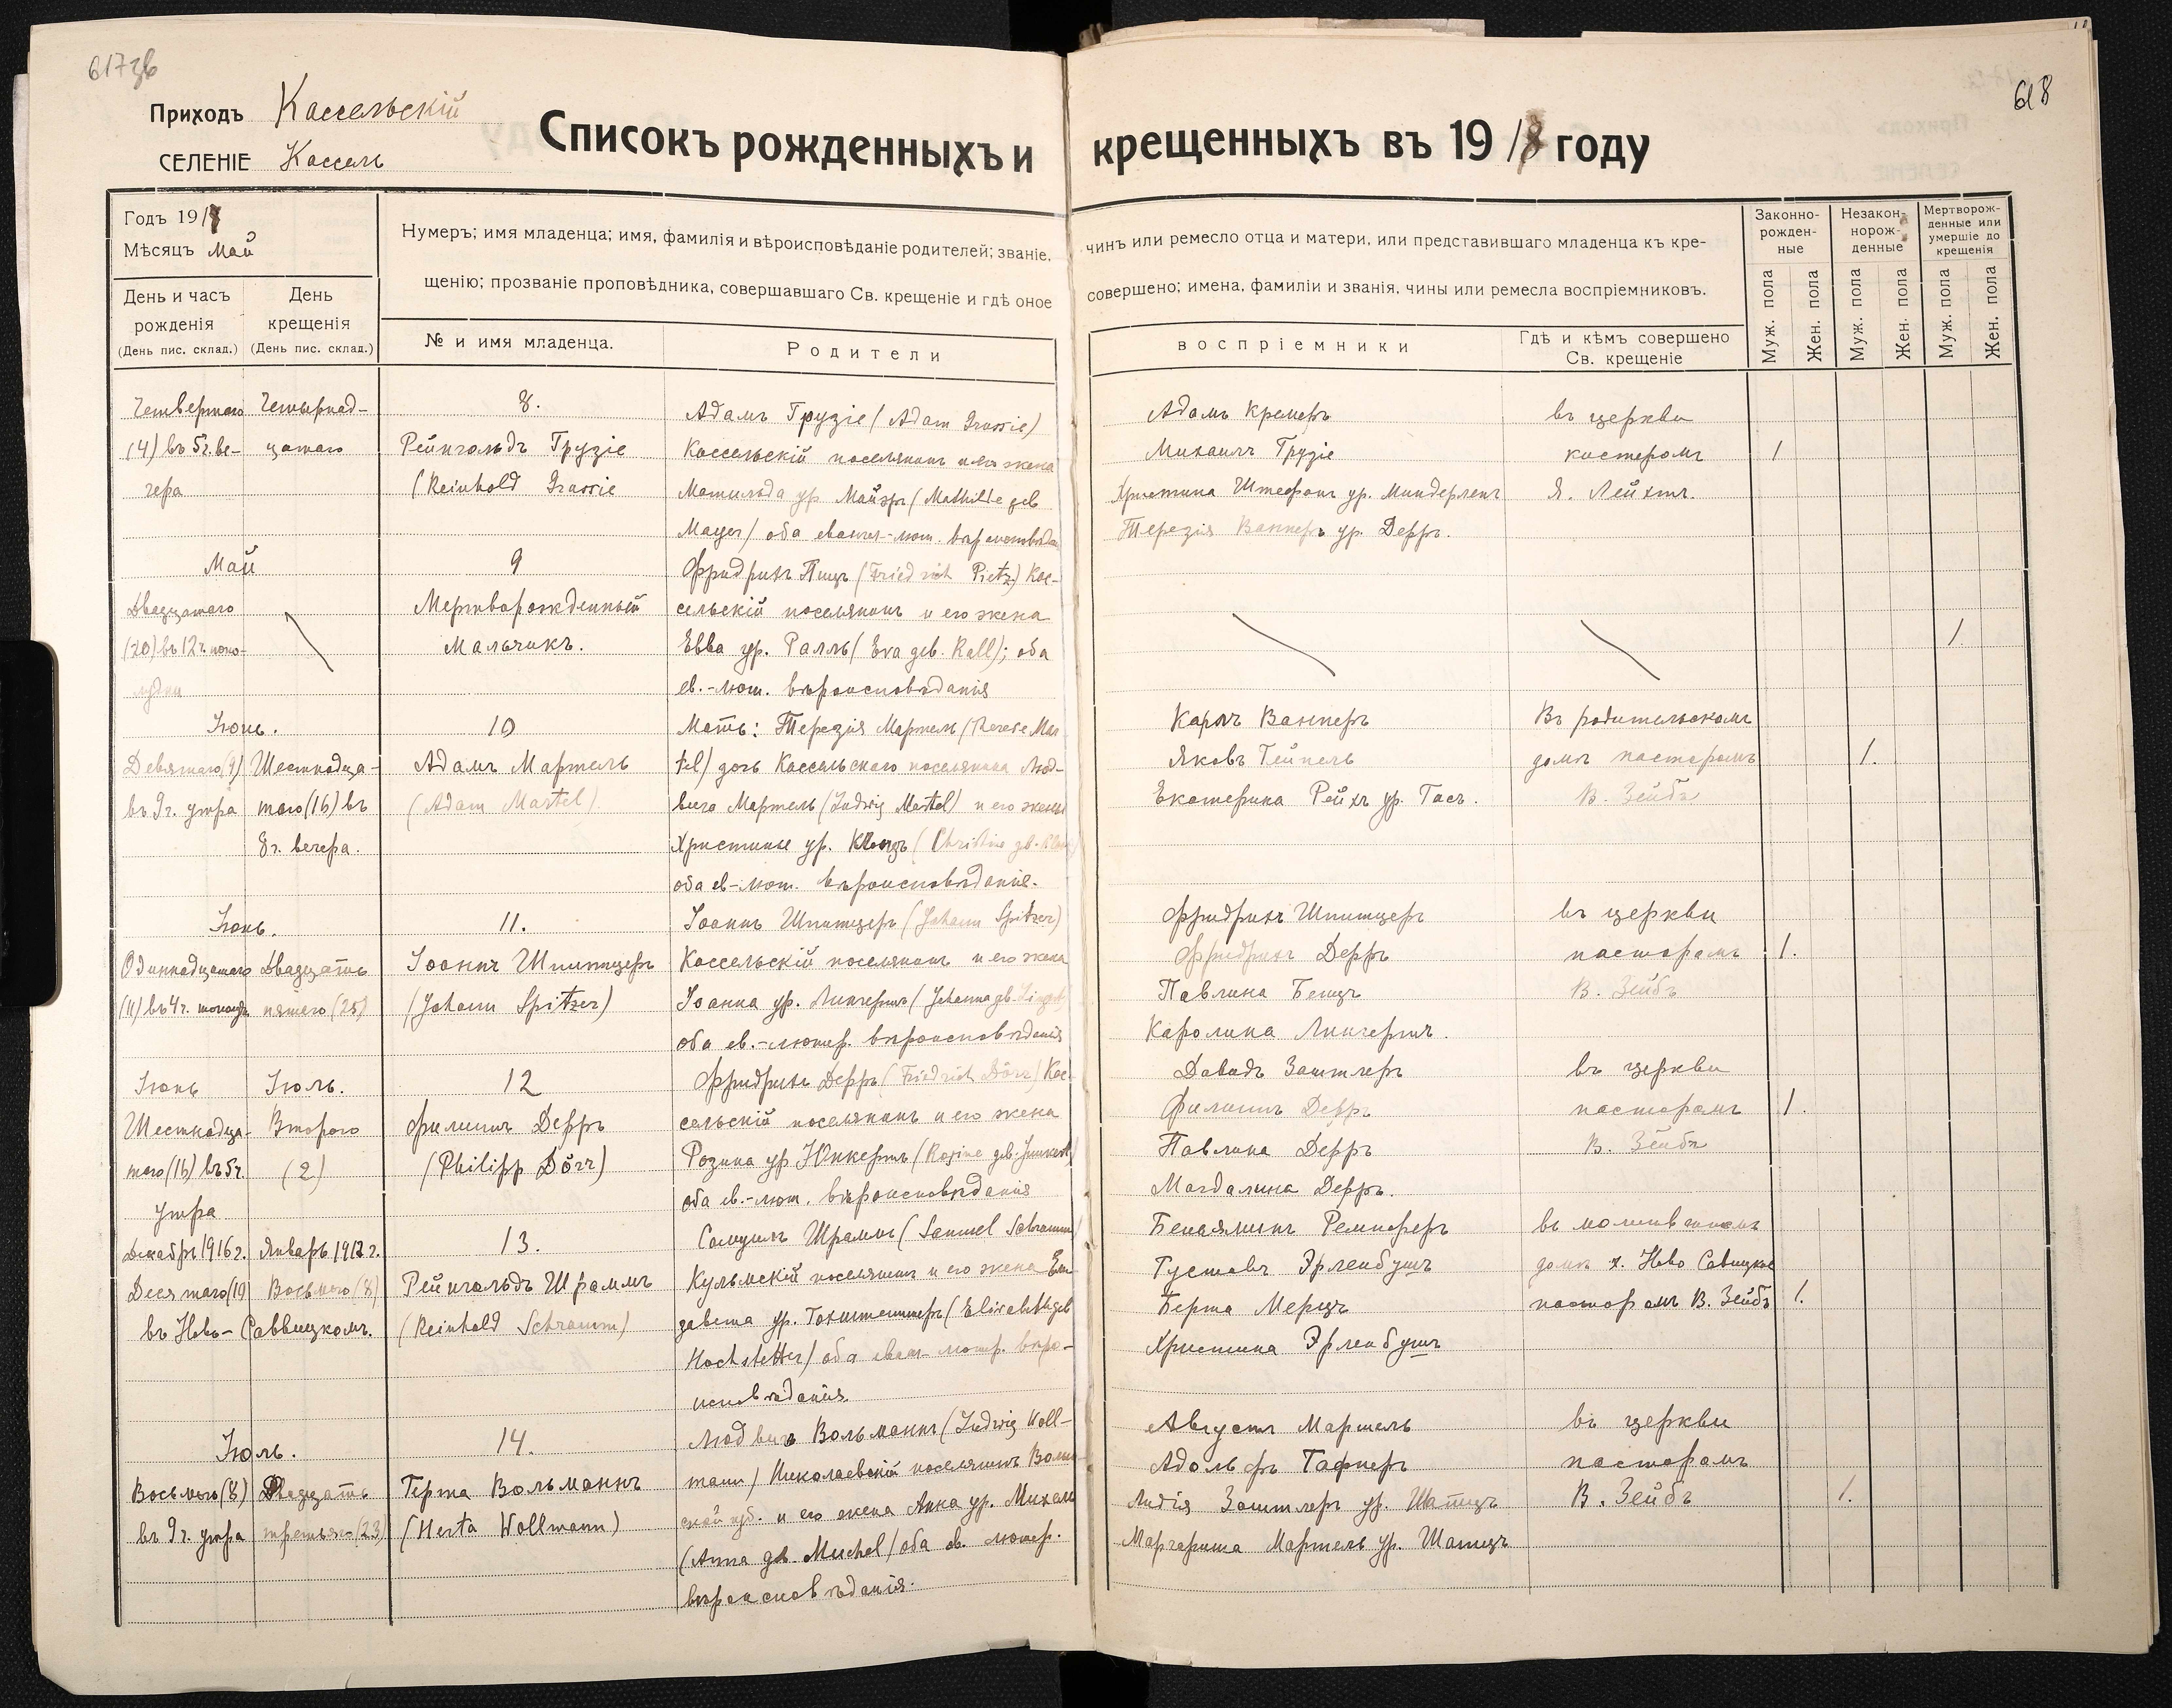 617 зв
618
Приходъ Кассельскій
СЕЛЕНІЕ Кассель
Списокъ рожденныхъ и крещенныхъ въ 19 году
Годъ 19
Мѣсяцъ Май
Нумеръ; имя младенца; имя, фамилія и вѣроисповѣданіе родителей; званіе, чинъ или ремесло отца и матери, или представившаго младенца къ кре-
щенію; прозваніе проповѣдника, совершавшаго Св. крещеніе и гдѣ оное совершено; имена, фамиліи и званія, чины или ремесла воспріемниковъ.
День и часъ рожденія (День пис. склад.)
День крещенія (День пис. склад.)
№ и имя младенца.
Родители
воспріемники
Гдѣ и кѣмъ совершено Св. крещеніе
Законно-рожден-ные
Незакон-норож-денные
Мертворож-денные или умершіе до крещенія
Муж. пола Жен. пола Муж. пола Жен. пола Муж. пола Жен. пола
Четвертаго
(4) въ 5 ч. ве-
чера
Четырнад-
цатаго
8.
Рейнгольдъ Грузіе
(Reinhold
Адамъ Грузіе (Adam
Кассельскій поселянинъ и его жена
Матильда ур. Майэръ (Mathilde geb
Mayer) оба евангел-лют. вѣроисповѣда
Адамъ Кремеръ
Михаилъ Грузіе
Христина Штефанъ ур. Миндерленъ
Терезія Ваннеръ ур. Дерръ.
въ церкви
пасторомъ
Я. Лейхтъ.
1
Май
Двадцатаго
(20) въ 12 ч. попо-
лудни
9
Мертворожденный
Мальчикъ.
Фридрихъ Пицъ (Friedrich Pietz) Кас-
сельскій поселянинъ и его жена
Евва ур. Ралль (Eva geb. Rall); оба
ев.-лют. вѣроисповѣданія
1.
Іюнь.
Девятаго (9)
въ 9 ч. утра
Шестнадца-
таго (16) въ
8 ч. вечера.
10
Адамъ Мартель
(Adam Martel).
Мать: Терезія Мартель (Therese Mar
tel) дочь Кассельскаго поселянина Люд-
вига Мартель (Ludwig Martel) и его жены
Христины ур. (Christine geb.
оба ев-лют. вѣроисповѣданія.
Карлъ Ваннеръ
Яковъ Гейнель
Екатерина Рейхъ ур. Гасъ.
Въ родительскомъ
домѣ пасторомъ
В. Зейбъ
1.
Іюнь.
Одиннадцатаго
(11) въ 4 ч.
Двадцать
пятаго (25)
11.
Іоаннъ Шпитцеръ
(Johann Spitzer)
Іоаннъ Шпитцеръ (Johann Spitzer)
Кассельскій поселянинъ и его жена
Іоанна ур. Лингертъ (Johanna geb.
оба ев.-лютер. вѣроисповѣданія
Фридрихъ Шпитцеръ
Фридрихъ Дерръ
Павлина Бецъ
Каролина Лингертъ.
въ церкви
пасторомъ
В. Зейбъ
1.
Іюнь
Шестнадца-
таго (16) въ 5 ч.
утра
Іюль.
Второго
(2)
12
Филиппъ Дерръ
(Philipp Dörr)
Фридрихъ Дерръ (Friedrich Dörr) Кас-
сельскій поселянинъ и его жена
Розина ур Юнкертъ (Rosine geb. Junkert)
оба ев.-лют. вѣроисповѣданія
Давидъ Затлеръ
Филиппъ Дерръ
Павлина Дерръ
Магдалина Дерръ.
въ церкви
пасторомъ
В. Зейбъ
1.
Декабрь 1916 г.
Январь 1917 г.
Восьмого (8)
въ Ново-Саввицкомъ.
13.
Рейнгольдъ Шраммъ
(Reinhold Schramm)
Самуилъ Шраммъ (Samuel Schramm)
Кульмскій поселянинъ и его жена Ели
завета ур. Гохштеттеръ (Elisabeth geb
Hochstetter) оба еванг лютер. вѣро-
исповѣданія.
Беньяминъ Ремпферъ
Густавъ Эрленбушъ
Берта Мерцъ
Христина Эрленбушъ
въ молитвенномъ
домѣ х. Ново Савицкое
пасторомъ В. Зейбъ
1.
Іюль.
Восьмого (8)
въ 9 ч. утра
Двадцать
третьяго (23)
14.
Герта Вольманнъ
(Herta Wollmann)
Людвигъ Вольманнъ (Ludwig Woll-
mann) Николаевскій поселянинъ
ской губ. и его жена Анна ур. Михель
(Anna geb. Michel) оба ев. лютер.
вѣроисповѣданія.
Августъ Мартель
Адольфъ Гафнеръ
Лидія Затлеръ ур. Шатцъ
Маргарита Мартель ур. Шатцъ
въ церкви
пасторомъ
В. Зейбъ
1.